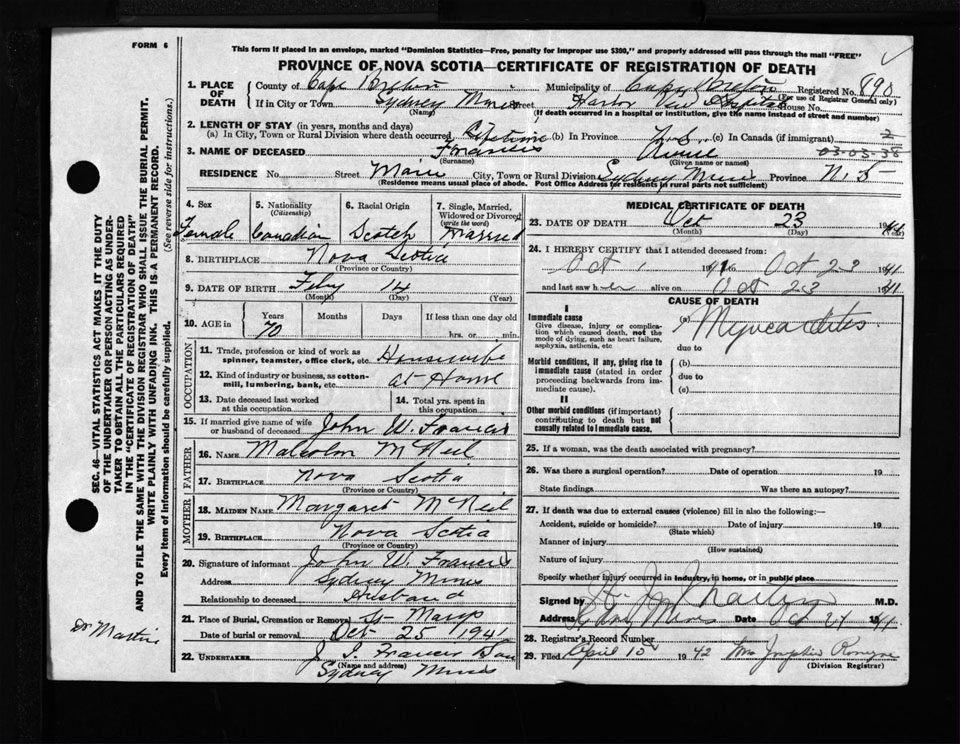 FORM 6
This form if placed in an envelope, marked "Dominion Statistics—Free, penalty for improper use $300," and properly addressed will pass through the mail "FREE"
PROVINCE OF NOVA SCOTIA—CERTIFICATE OF REGISTRATION OF DEATH
1. PLACE OF DEATH
County of Cape Breton Municipality of Cape Breton Registered No. 890
(For use of Registrar General only)
If in City or Town Sydney Mines Street Harbor View Hospital House No.
(Name) (If death occurred in a hospital or institution, give the name instead of street and number)
2. LENGTH OF STAY (in years, months and days)
(a) In City, Town or Rural Division where death occurred Lifetime (b) In Province N.S. (c) In Canada (if immigrant) 2
3. NAME OF DECEASED Francis 03-03-38
(Surname) (Given name or names)
RESIDENCE No. Street Main City, Town or Rural Division Sydney Mines Province N.S
(Residence means usual place of abode. Post Office Address for residents in rural parts not sufficient)
4. Sex Female
5. Nationality (Citizenship) Canadian
6. Racial Origin Scotch
7. Single, Married, Widowed or Divorced (write the word) Married
8. BIRTHPLACE Nova Scotia
(Province or Country)
9. DATE OF BIRTH Feby 14
(Month) (Day) (Year)
10. AGE in Years Months Days If less than one day old
70 hrs. or min.
OCCUPATION
11. Trade, profession or kind of work as spinner, teamster, office clerk, etc. Housewife
12. Kind of industry or business, as cotton-mill, lumbering, bank, etc. at Home
13. Date deceased last worked at this occupation
14. Total yrs. spent in this occupation
15. If married give name of wife or husband of deceased John W. Francis
FATHER
16. NAME Malcolm McNeil
17. BIRTHPLACE Nova Scotia
(Province or Country)
MOTHER
18. MAIDEN NAME Margaret McNeil
19. BIRTHPLACE Nova Scotia
(Province or Country)
20. Signature of informant John W. Francis
Address Sydney Mines
Relationship to deceased Husband
21. Place of Burial, Cremation or Removal St Marys
Date of burial or removal Oct 25 1941
22. UNDERTAKER J. J. Francis & Son
(Name and address)
Sydney Mines
MEDICAL CERTIFICATE OF DEATH
23. DATE OF DEATH Oct 23 1941
(Month) (Day) (Year)
24. I HEREBY CERTIFY that I attended deceased from:
Oct 1 1941 to Oct 23 1941
and last saw her alive on Oct 23 1941
CAUSE OF DEATH
I
Immediate cause
Give disease, injury or complication which caused death, not the mode of dying, such as heart failure, asphyxia, asthenia, etc
(a) Myocarditis
due to
Morbid conditions, if any, giving rise to immediate cause (stated in order proceeding backwards from immediate cause).
(b)
due to
(c)
II
Other morbid conditions (if important) contributing to death but not causally related to immediate cause.
25. If a woman, was the death associated with pregnancy?
26. Was there a surgical operation? Date of operation 19
State findings Was there an autopsy?
27. If death was due to external causes (violence) fill in also the following:—
Accident, suicide or homicide? Date of injury 19
(State which)
Manner of injury
(How sustained)
Nature of injury
Specify whether injury occurred in industry, in home, or in public place
Signed by M.D.
Address Sydney Mines Date Oct 24 1941
28. Registrar's Record Number
29. Filed April 10 1942 Mrs Josephine
(Division Registrar)
SEC. 46—VITAL STATISTICS ACT MAKES IT THE DUTY
OF THE UNDERTAKER OR PERSON ACTING AS UNDERTAKER TO OBTAIN ALL THE PARTICULARS REQUIRED
IN THE "CERTIFICATE OF REGISTRATION OF DEATH"
AND TO FILE THE SAME WITH THE DIVISION REGISTRAR WHO SHALL ISSUE THE BURIAL PERMIT.
WRITE PLAINLY WITH UNFADING INK. THIS IS A PERMANENT RECORD.
Every item of information should be carefully supplied. (See reverse side for instructions.)
Dr Martin